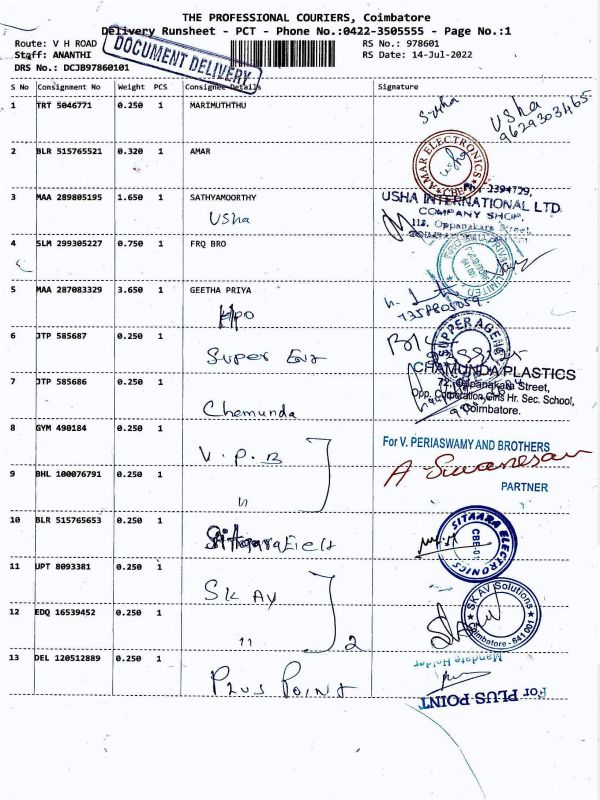 THE PROFESSIONAL COURIERS, Coimbatore
Delivery Runsheet - PCT - Phone No.:0422-3505555 - Page No.:1
Route: V H ROAD
RS No.: 978601
Staff: ANANTHI
RS Date: 14-Jul-2022
DRS No.: DCJB97860101
DOCUMENT DELIVERY
S No Consignment No Weight PCS Consignee Details Signature
1 TRT 5046771 0.250 1 MARIMUTHTHU
Usha
9629303465
2 BLR 515765521 0.320 1 AMAR
AMAR ELECTRONICS
usha
CBE
3 MAA 289805195 1.650 1 SATHYAMOORTHY
Usha
2394729,
USHA INTERNATIONAL LTD
COMPANY SHOP,
118, Oppanakara Street,
4 SLM 299305227 0.750 1 FRQ BRO
5 MAA 287083329 3.650 1 GEETHA PRIYA
7358805059
6 JTP 585687 0.250 1
Super Ent
7 JTP 585686 0.250 1 Chamunda
CHAMUNDA PLASTICS
72, Oppanakara Street,
Opp. Corporation Girls Hr. Sec. School,
Coimbatore.
8 GYM 490184 0.250 1 V.P.B
For V. PERIASWAMY AND BROTHERS
A. Sivanesan
PARTNER
9 BHL 100076791 0.250 1 "
10 BLR 515765653 0.250 1
SITAARA ELECTRONICS
11 UPT 8093381 0.250 1 SK AV
SK AV Solutions
Coimbatore - 641 001
12 EDQ 16539452 0.250 1 " 2
13 DEL 120512889 0.250 1 Plus Point
Mandate Holder
For PLUS POINT